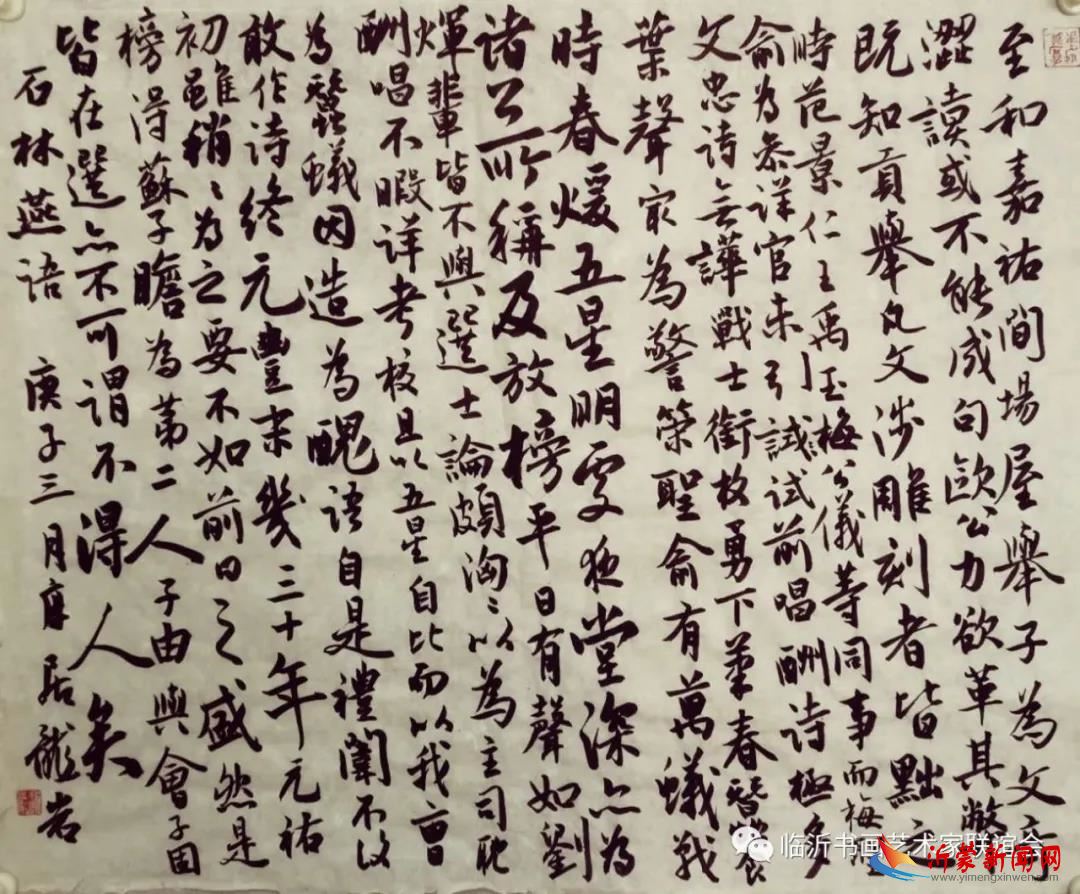 至和嘉祐間場屋舉子為文
澀讀或不能成句歐公力欲革其弊
既知貢舉凡文涉雕刻者皆黜之
時范景仁王禹玉梅公儀等同事而梅聖
俞為參詳官未引試前唱酬詩極多
文忠詩無譁戰士銜枚勇下筆春蠶食
葉聲最為警策聖俞有萬蟻戰
時春煖五星明處夜堂深亦為
諸公所稱及放榜平日有聲如劉
煇輩皆不與選士論頗洶〻以為主司耽
酬唱不暇詳考校且以五星自比而以我曹
為蠶蟻因造為醜語自是禮闈不復
敢作詩終元豐末幾三十年元祐
初雖稍〻為之要不如前日之盛然是
榜得蘇子瞻為第二人子由與曾子固
皆在選亦不可謂不得人矣
石林燕語 庚子三月
临沂书画艺术家联谊会
沂蒙新闻网
www.yimengxinwen.com